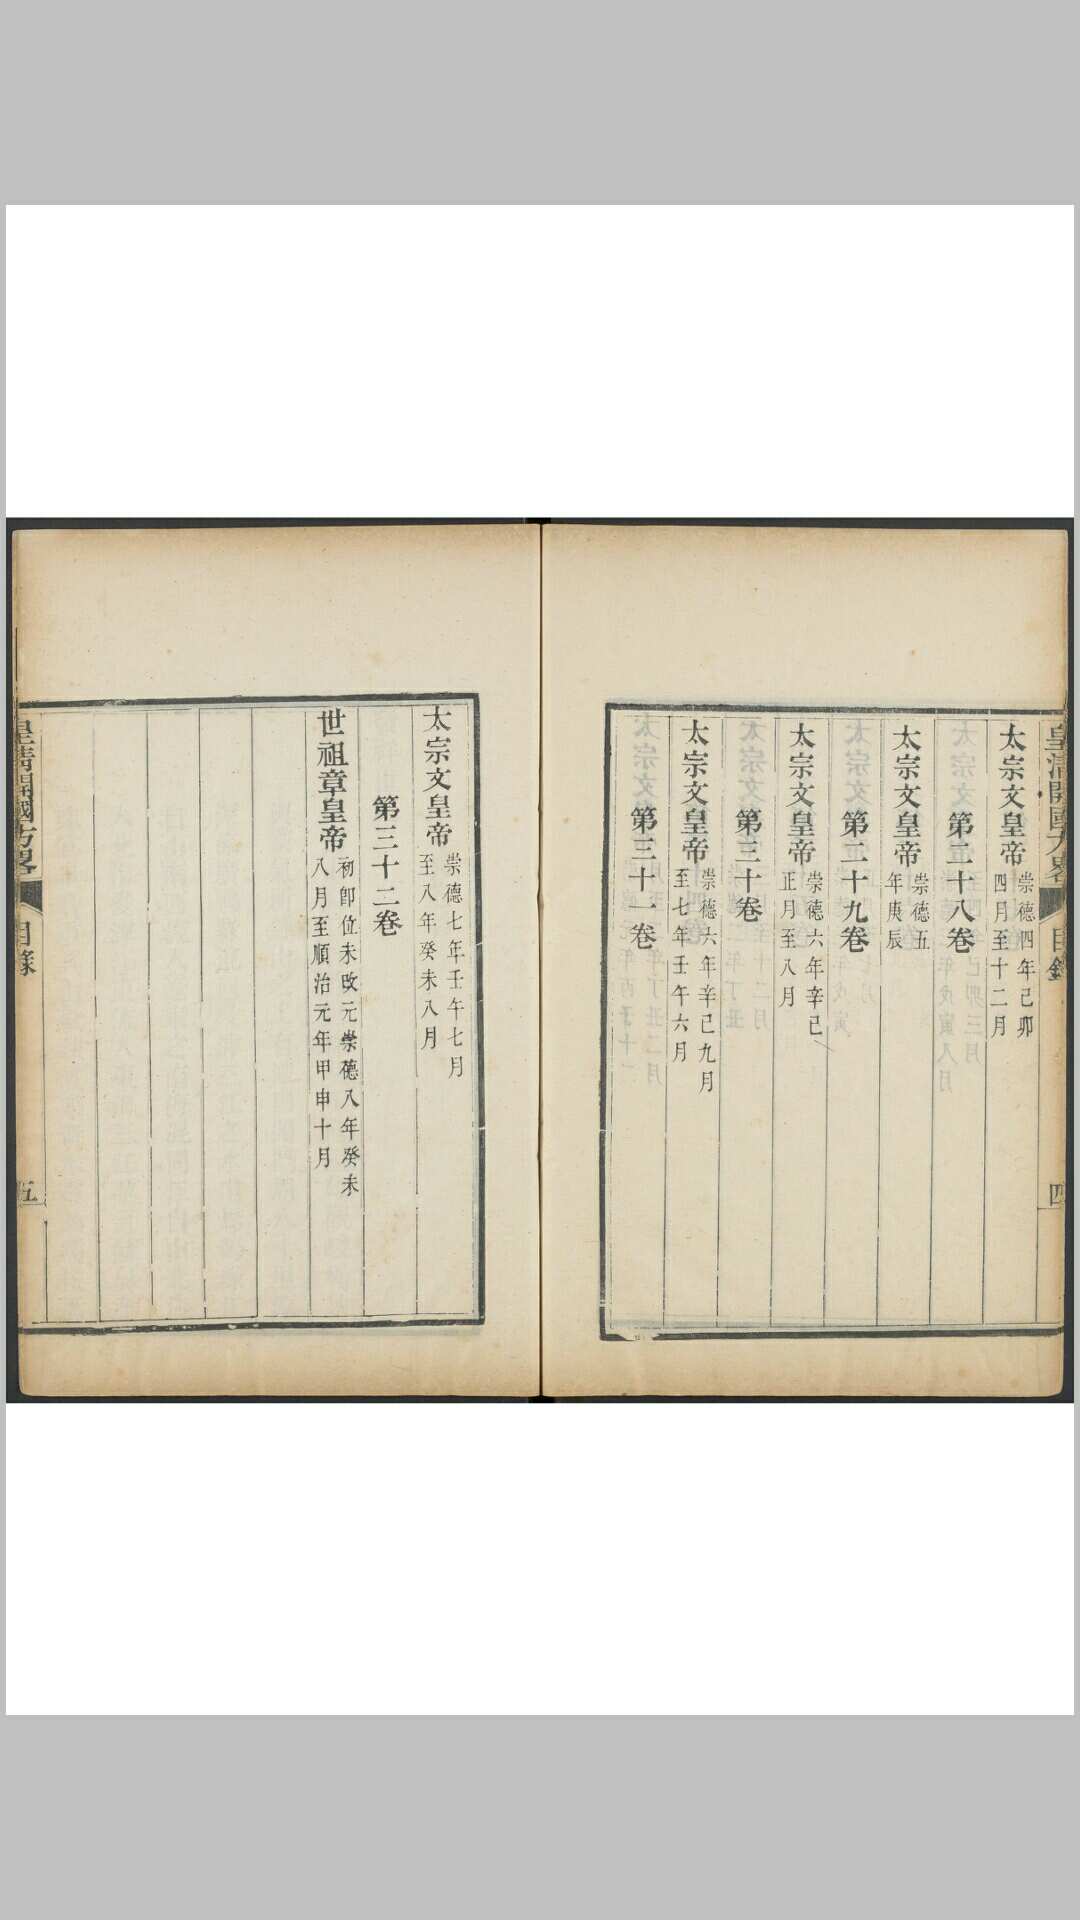 皇清開國方畧
目錄
四
太宗文皇帝
崇德四年己卯
四月至十二月
第二十八卷
太宗文皇帝
崇德五
年庚辰
第二十九卷
太宗文皇帝
崇德六年辛己
正月至八月
第三十卷
太宗文皇帝
崇德六年辛己九月
至七年壬午六月
第三十一卷
太宗文皇帝
崇德七年壬午七月
至八年癸未八月
第三十二卷
世祖章皇帝
初卽位未改元崇德八年癸未
八月至順治元年甲申十月
皇清開國方畧
目錄
五